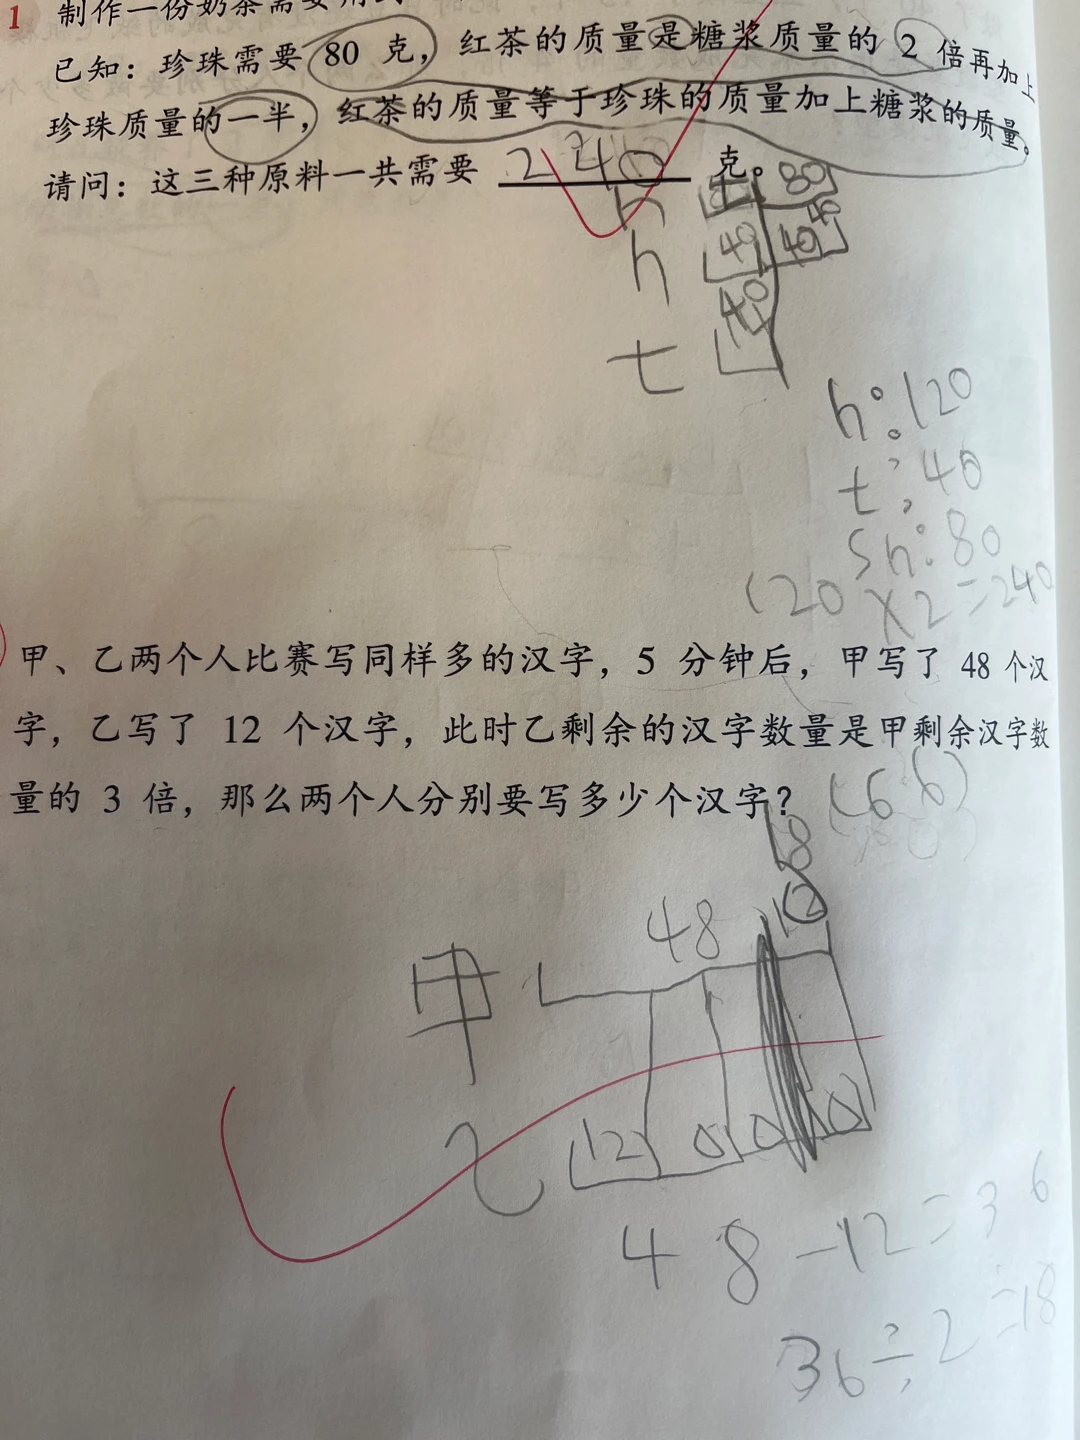 1 制作一份奶茶需要用到
已知：珍珠需要 80 克，红茶的质量是糖浆质量的 2 倍再加上
珍珠质量的一半，红茶的质量等于珍珠的质量加上糖浆的质量。
请问：这三种原料一共需要 240 克。
h 80
h 40 40 40
40
t
h:120
t:40
Sh:80
120×2=240
甲、乙两个人比赛写同样多的汉字，5 分钟后，甲写了 48 个汉
字，乙写了 12 个汉字，此时乙剩余的汉字数量是甲剩余汉字数
量的 3 倍，那么两个人分别要写多少个汉字？(66)
18
48
甲
乙 12
48-12=36
36÷2=18